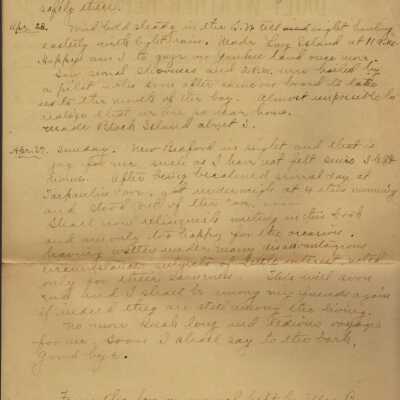 safely there.
Apr. 28. Wind held steady in the S.W till midnight hauling
easterly with light rain. Made Long Island at 11 P.M.
Happy am I to gaze on Yankee land once more.
Saw several schooners and were hailed by
a pilot who soon after came on board to take
us to the mouth of the bay. Almost impossible to
realize that we are so near home.
made Block Island about 3.
Apr. 29. Sunday. New Bedford in sight and that is
joy for me, such as I have not felt since I left
home. After being becalmed several days at
Tarpaulin Cove, got underweigh at 4 this morning
and stood out of the Cove
Shall now relinquish writing in this book
and am only too happy for the occasion.
having written under many disadvantageous
circumstances subjects of little interest noted
only for their sameness. This will soon
end and I shall be among my friends again
if indeed they are still among the living.
No more such long and tedious voyages
for me, soon I shall say to the bark,
Good bye.